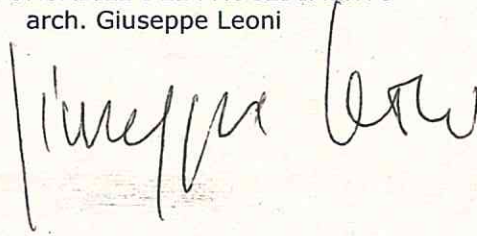 arch. Giuseppe Leoni
Giuseppe Leoni